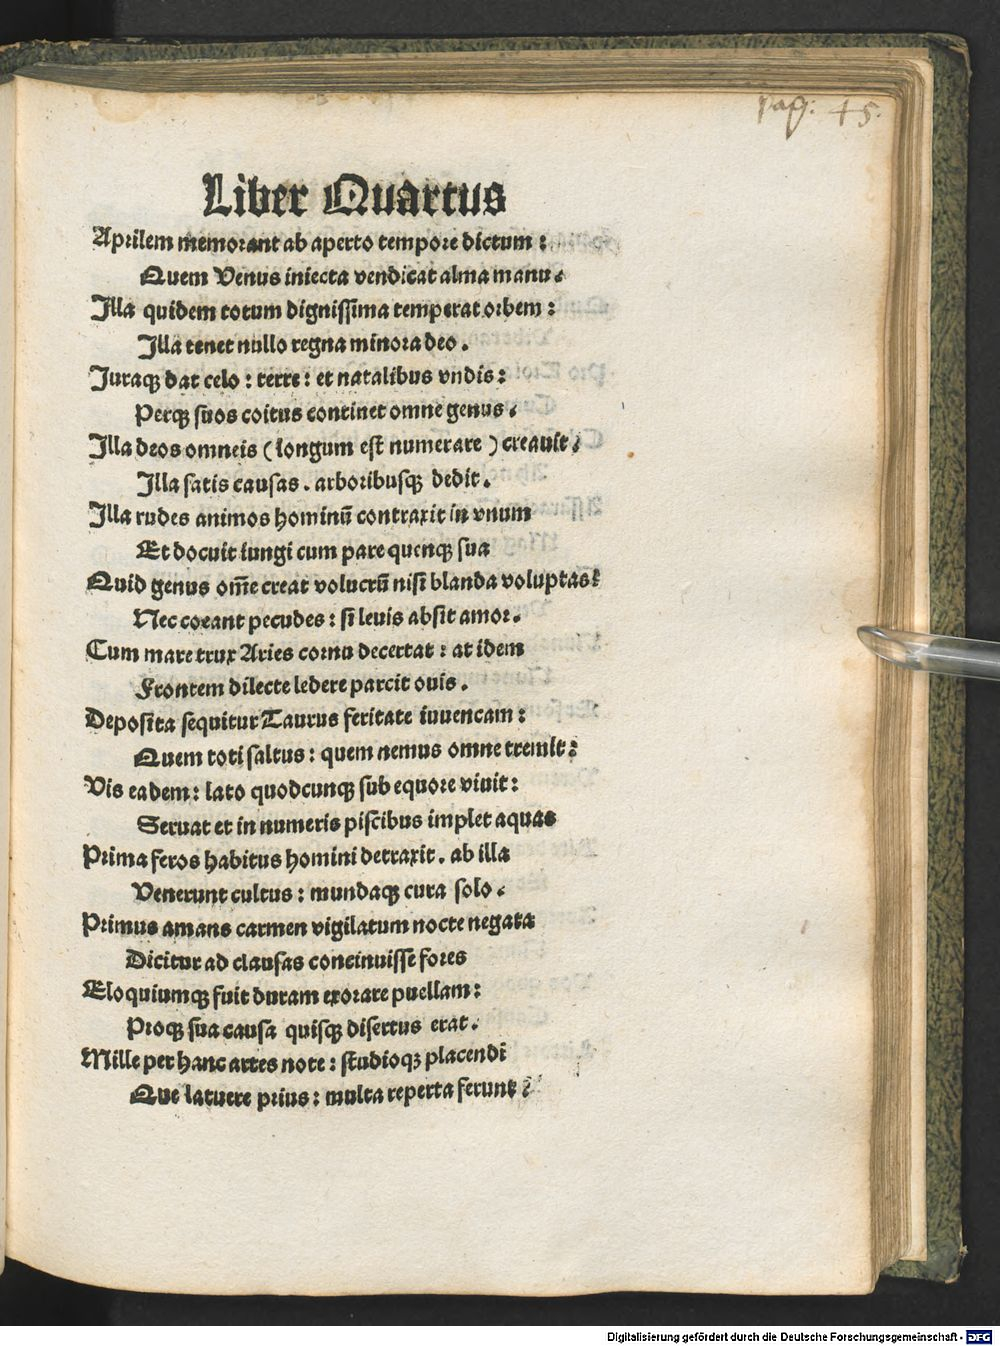 pag: 45.
Liber Quartus
Aprilem memorant ab aperto tempore dictum :
Quem Venus iniecta vendicat alma manu.
Illa quidem totum digniſſima temperat orbem :
Illa tenet nullo regna minora deo.
Juraqꝫ dat celo : terre : et natalibus vndis :
Perqꝫ ſuos coitus continet omne genus.
Illa deos omneis ( longum eſt numerare ) creauit.
Illa ſatis cauſas . arboribuſqꝫ dedit.
Illa rudes animos hominū contraxit in vnum
Et docuit iungi cum pare quenqꝫ ſua
Quid genus om̄e creat volucrū niſi blanda voluptas?
Nec coeant pecudes : ſi leuis abſit amor.
Cum mare trux Aries cornu decertat : at idem
Frontem dilecte ledere parcit ouis.
Depoſita ſequitur Taurus feritate iuuencam :
Quem toti ſaltus : quem nemus omne tremit :
Vis eadem : lato quodcunqꝫ ſub equore viuit :
Seruat et in numeris piſcibus implet aquas
Prima feros habitus homini detraxit . ab illa
Venerunt cultus : mundaqꝫ cura ſolo.
Primus amans carmen vigilatum nocte negata
Dicitur ad clauſas concinuiſſe fores
Eloquiumqꝫ fuit duram exorare puellam :
Proqꝫ ſua cauſa quiſqꝫ diſertus erat.
Mille per hanc artes note : ſtudioqꝫ placendi
Que latuere prius : multa reperta ferunt
Digitalisierung gefördert durch die Deutsche Forschungsgemeinschaft - DFG